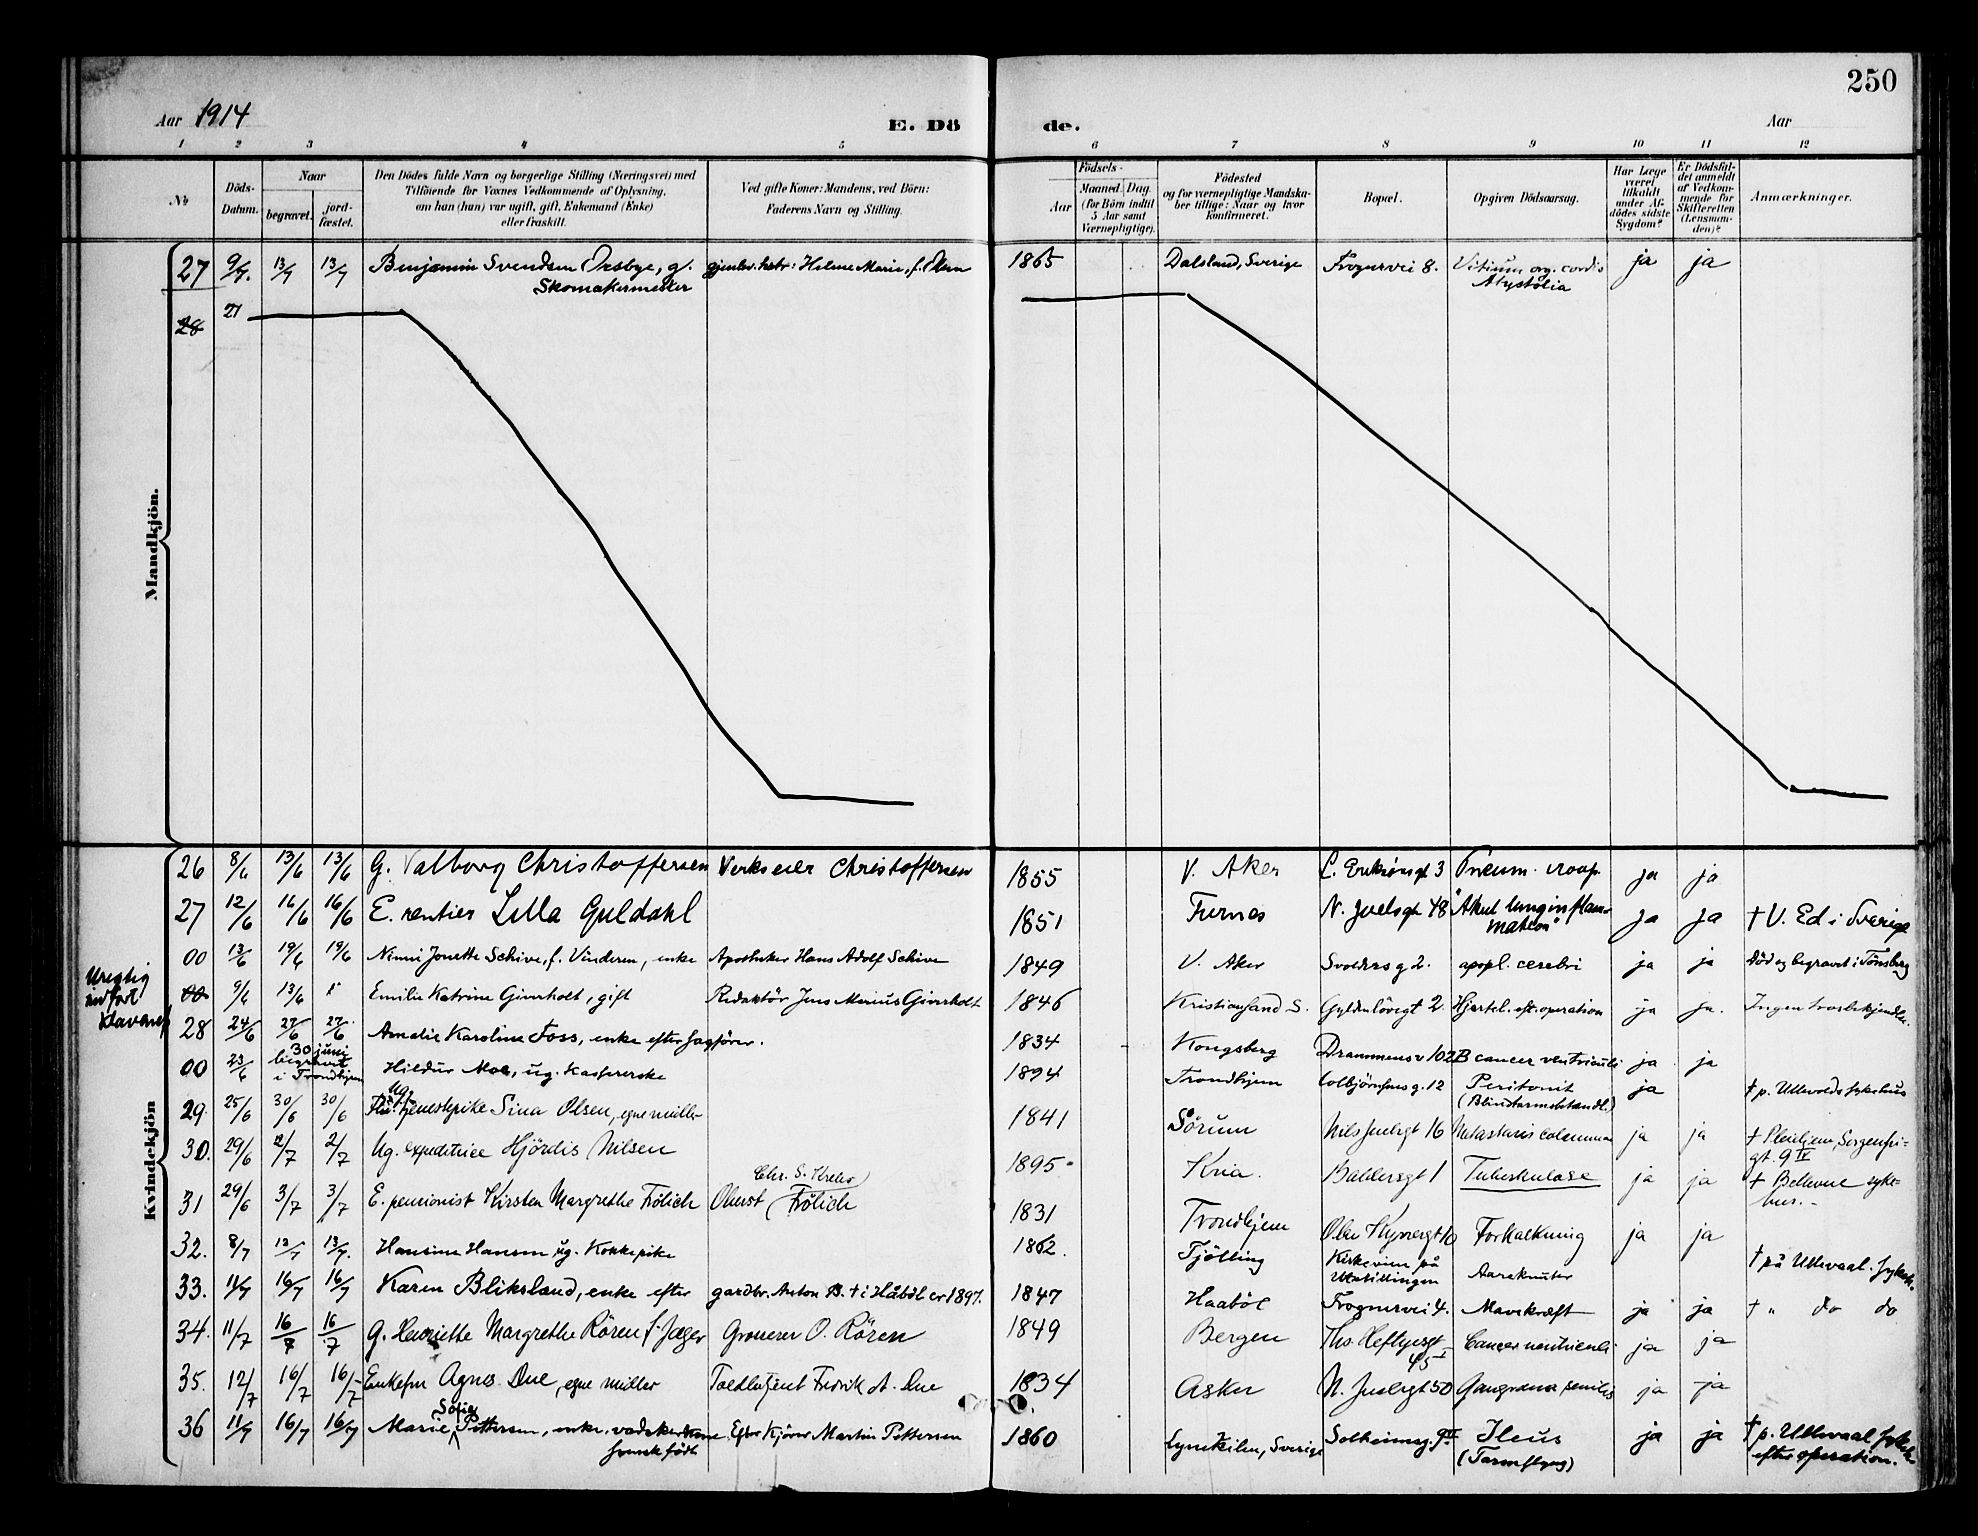 250
Aar 1914
E. Dö
de.
Aar
1 2 3 4 5 6 7 8 9 10 11 12
No
Döds-
Datum.
Naar
begravet.
jord-
fæstet.
Den Dödes fulde Navn og borgerlige Stilling (Næringsvei) med
Tilföiende for Voxnes Vedkommende af Oplysning,
om han (hun) var ugift, gift, Enkemand (Enke)
eller fraskilt.
Ved gifte Koner: Mandens, ved Börn:
Faderens Navn og Stilling.
Födsels-
Aar
Maaned. Dag.
(for Börn indtil
5 Aar samt
Værnepligtige).
Födested
og for værnepligtige Mandska-
ber tillige: Naar og hvor
konfirmeret.
Bopæl.
Opgiven Dödsaarsag.
Har Læge
været
tilkaldt
under Af-
dödes sidste
Sygdom?
Er Dödsfal-
det anmeldt
af Vedkom-
mende for
Skifteretten
(Lensman-
den)?
Anmærkninger.
Mandkjön.
27 9/7. 13/7 13/7 Benjamin Svendsen Orsbye, g. gjenlev. hstr: Helene Marie, f. Olsen 1865 Dalsland, Sverige Frognervei 8. Vitium org. cordis ja ja
Skomakermester Asystolia
28 27
Kvindekjön
26 8/6 13/6 13/6 G. Valborg Christoffersen Verkseier Christoffersen 1855 V. Aker L. Eriksönsgt 3 Pneum. croup. ja ja
27 12/6 16/6 16/6 E. rentier Lilla Guldahl 1851 Furnes N. Juelsgt 48 "Akut lunginflam- ja ja † V. Ed i Sverige
mation"
00 13/6 19/6 19/6 Ninni Jonette Schive, f. Vinderen, enke Apotheker Hans Adolf Schive 1849 V. Aker Svoldersg 2. apopl. cerebri ja ja Död og begravet i Tönsberg
Uregtig
indfört
00 9/6 13/6 Emilie Katrine Giverholt, gift Redaktör Jens Marius Giverholt 1846 Kristiansand S. Gyldenlövegt 2. Hjertel. eft. operation ja ja.
28 24/6 27/6 27/6 Amalie Karoline Foss, enke efter fagförer. 1834 Kongsberg Drammensv 102B cancer ventriculi ja ja
00 23/6 30 juni
begravet
i Trondhjem
Hildur Moe, ug. kassererske 1894 Trondhjem Colbjörnsensg. 12 Peritonit ja † p. Ullevolds sykehus
(Blindtarmsbetændl.)
29. 25/6 30/6 30/6 Ug. tjenestepike Sina Olsen, egne midler 1841 Sörum Nils Juelsgt 16 Metastasis columnæ ja ja † Pleiehjem, Sorgenfri-
gt. 9 IV
30. 29/6 2/7 2/7 Ug. expeditrice Hjördis Nilsen 1895 Kria. Baldersgt 1 Tuberkulose ja ja † Bellevue syke-
hus.
31 29/6 3/7 3/7 E. pensionist Kirsten Margrethe Frölich Oberst Frölich 1831 Trondhjem Forkalkning ja ja
Chr. S. Krebs
32. 8/7 13/7 13/7. Hansine Hansen ug. Kokkepike 1862. Tjölling Kirkeveien på Aareknuter † på Ullevaal. sykeh.
Utstillingen
33. 11/7 16/7 16/7 Karen Bliksland, enke efter gardbr. Anton B. † i Håböl er 1897. 1847 Haaböl Frognervei 4. Mavekræft ja ja † " do do
34. 11/7 16/7 16/7 G. Henriette Margrethe Rören f. Jæger Grosserer O. Rören 1849 Bergen Ths. Heftyesgt Cancer ventriculi ja ja
45 I
35. 12/7 16/7 16/7 Enkefru Agnes Due, egne midler Toldbetjent Fredrik A. Due 1834 Asker N. Juelsgt 50 Gangræna senilis ja ja
36 11/7 16/7 16/7 Marie Sofie Pettersen, enke, vaskerkone Efter Kjörer Martin Pettersen 1860 Lysekilen, Sverige Solheimsg. 9 II Ileus ja ja † p. Ullevaal sykeh
svensk födt (Tarmslyng) efter operation.